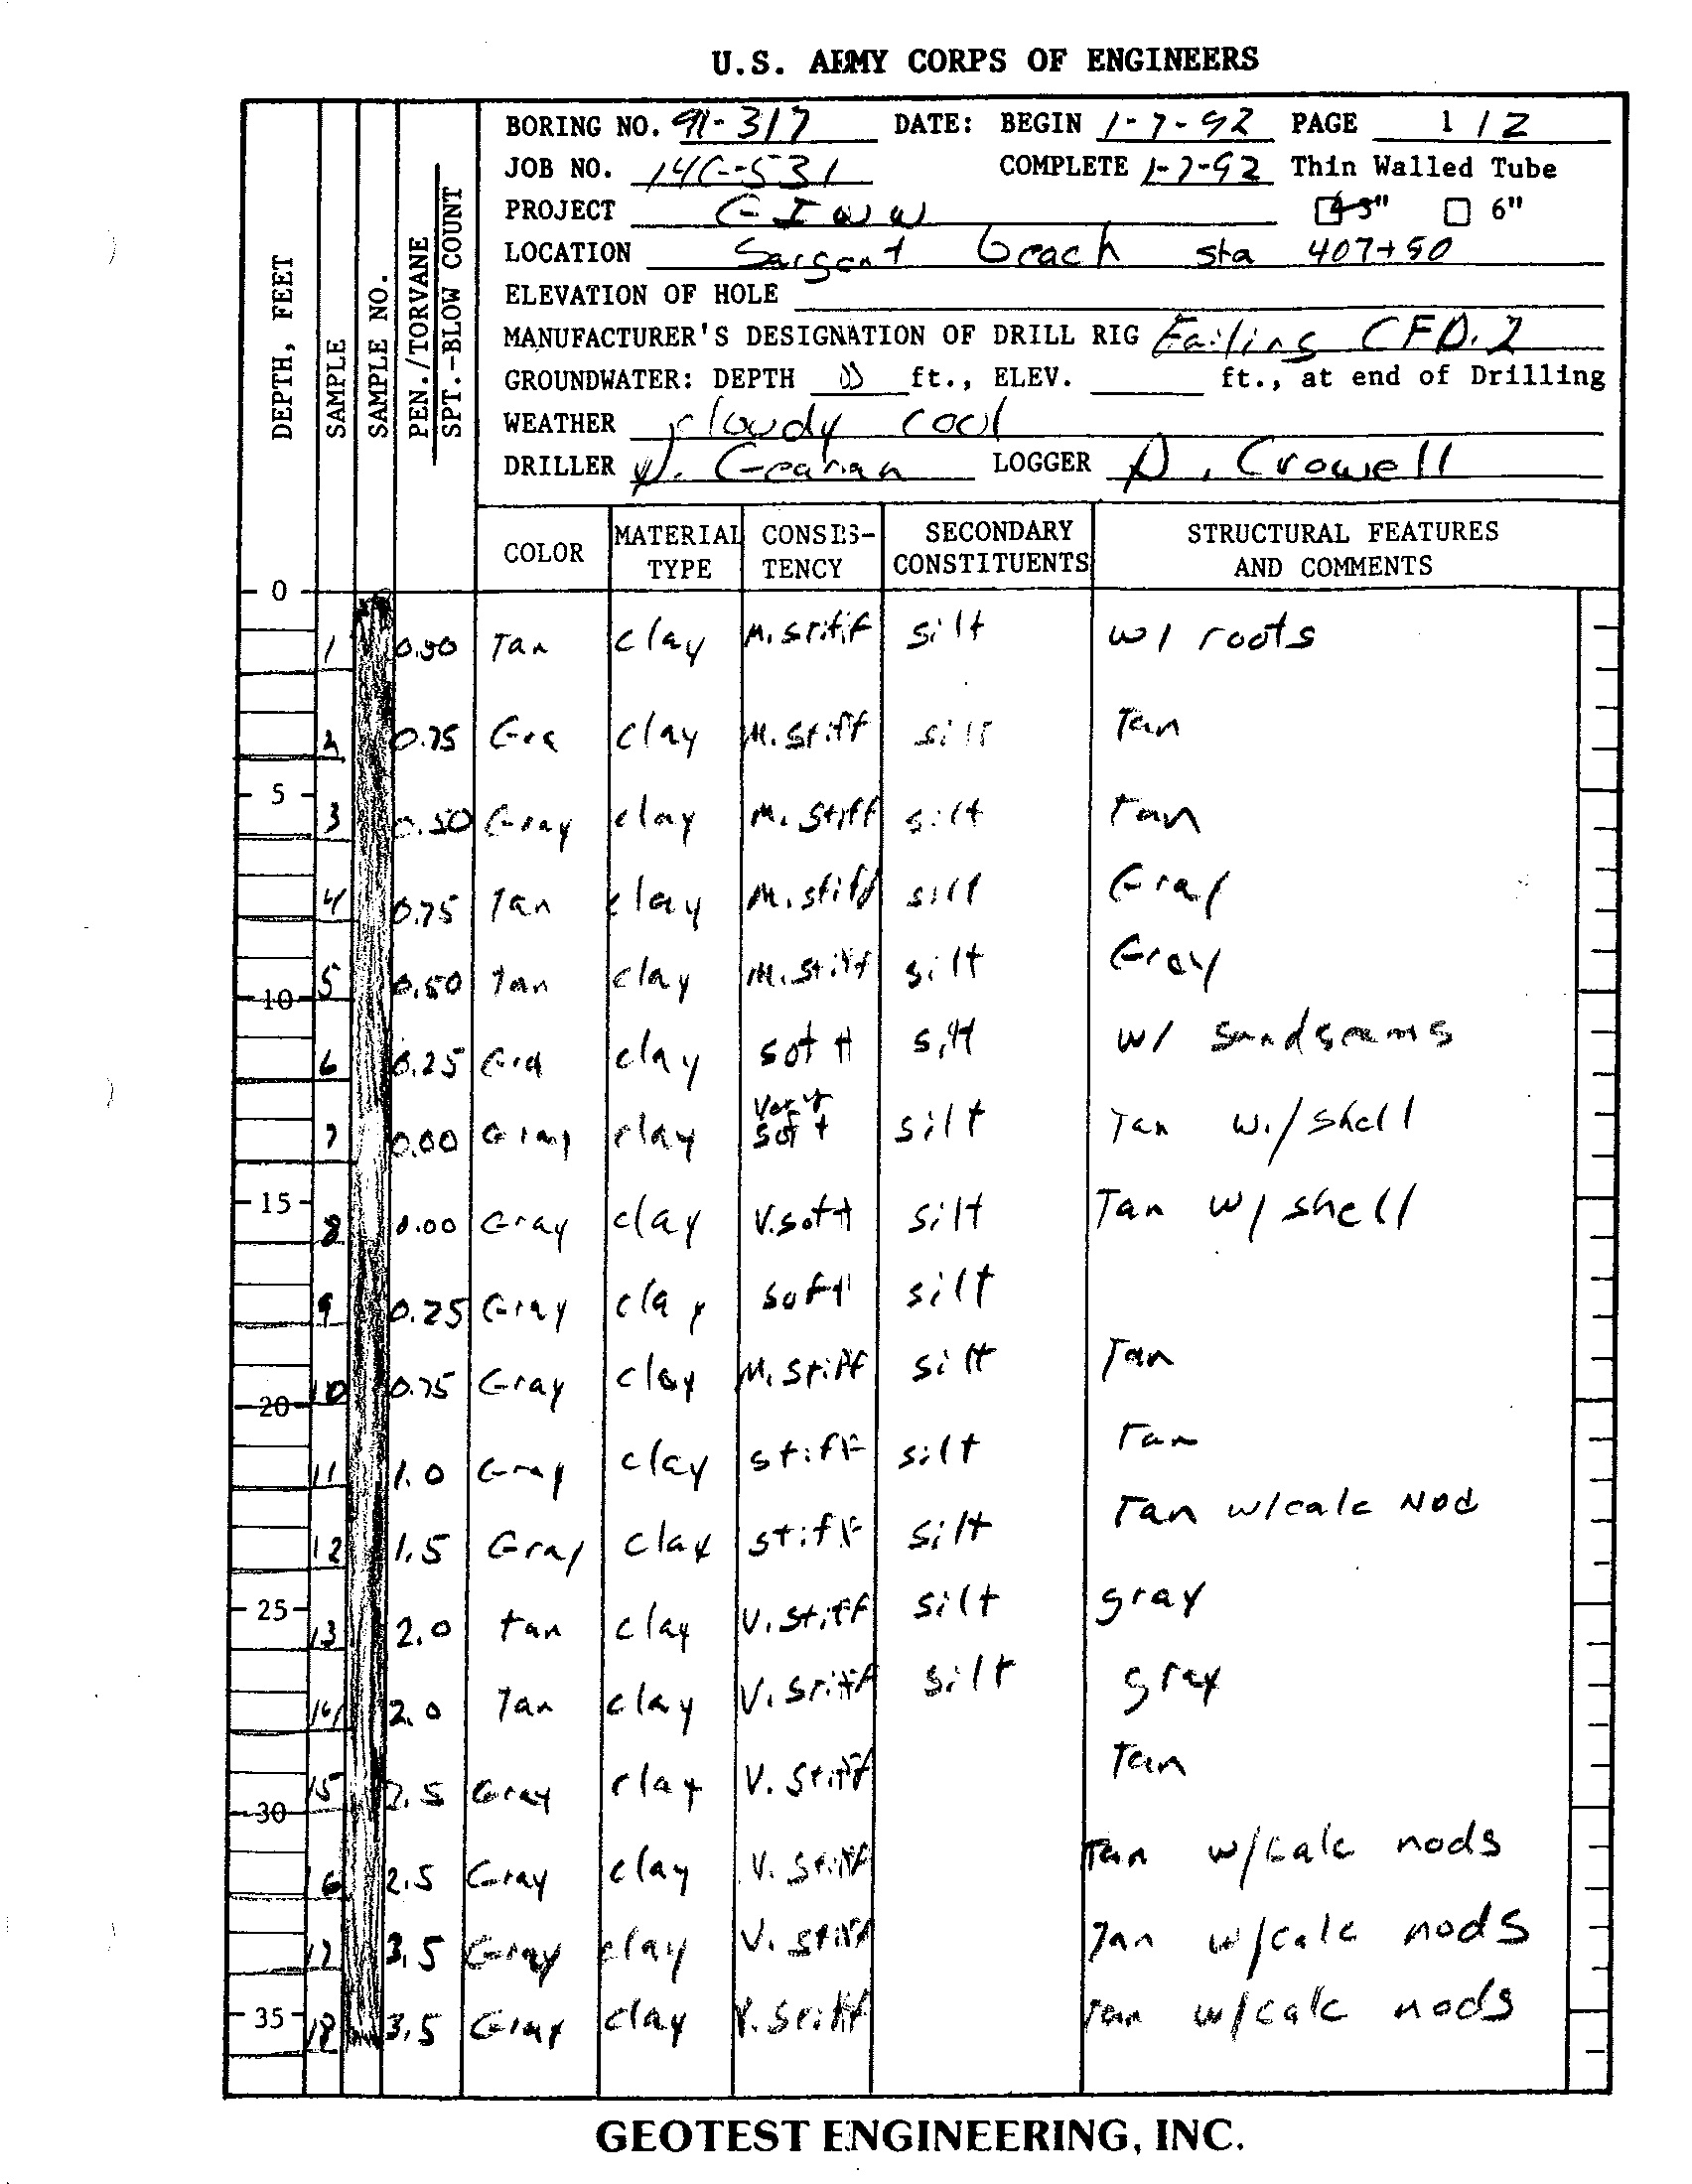 U.S. ARMY CORPS OF ENGINEERS
BORING NO. 91-317 DATE: BEGIN 1-7-92 PAGE 1 / 2
JOB NO. 14C-531 COMPLETE 1-7-92 Thin Walled Tube
PROJECT GIWW 6"
LOCATION Sargent beach sta 407+50
ELEVATION OF HOLE
MANUFACTURER'S DESIGNATION OF DRILL RIG Failing CFD.2
GROUNDWATER: DEPTH ft., ELEV. ft., at end of Drilling
WEATHER cloudy cool
DRILLER LOGGER D. Crowell
DEPTH, FEET
SAMPLE
SAMPLE NO.
PEN./TORVANE
SPT.-BLOW COUNT
COLOR MATERIAL TYPE CONSIS-TENCY SECONDARY CONSTITUENTS STRUCTURAL FEATURES AND COMMENTS
0
1 0.50 Tan clay M. stiff silt w/ roots
2 0.75 Gra clay M. stiff silt Tan
5
3 0.50 Gray clay M. Stiff silt tan
4 0.75 Tan clay M. stiff silt Gray
5 0.50 Tan clay M. Stiff silt Gray
10
6 0.25 Gra clay soft silt w/ sandseams
7 0.00 Gray clay Very soft silt Tan w./ shell
15
8 0.00 Gray clay V. soft silt Tan w/ shell
9 0.25 Gray clay soft silt
10 0.75 Gray clay M. Stiff silt Tan
20
11 1.0 Gray clay stiff silt Tan
12 1.5 Gray clay stiff silt Tan w/calc Nod
25
13 2.0 tan clay V. Stiff silt gray
14 2.0 Tan clay V. Stiff silt gray
15 2.5 Gray clay V. Stiff Tan
30
16 2.5 Gray clay V. Stiff Tan w/calc nods
17 3.5 Gray clay V. stiff Tan w/calc nods
35
18 3.5 Gray clay V. Stiff Tan w/calc nods
GEOTEST ENGINEERING, INC.